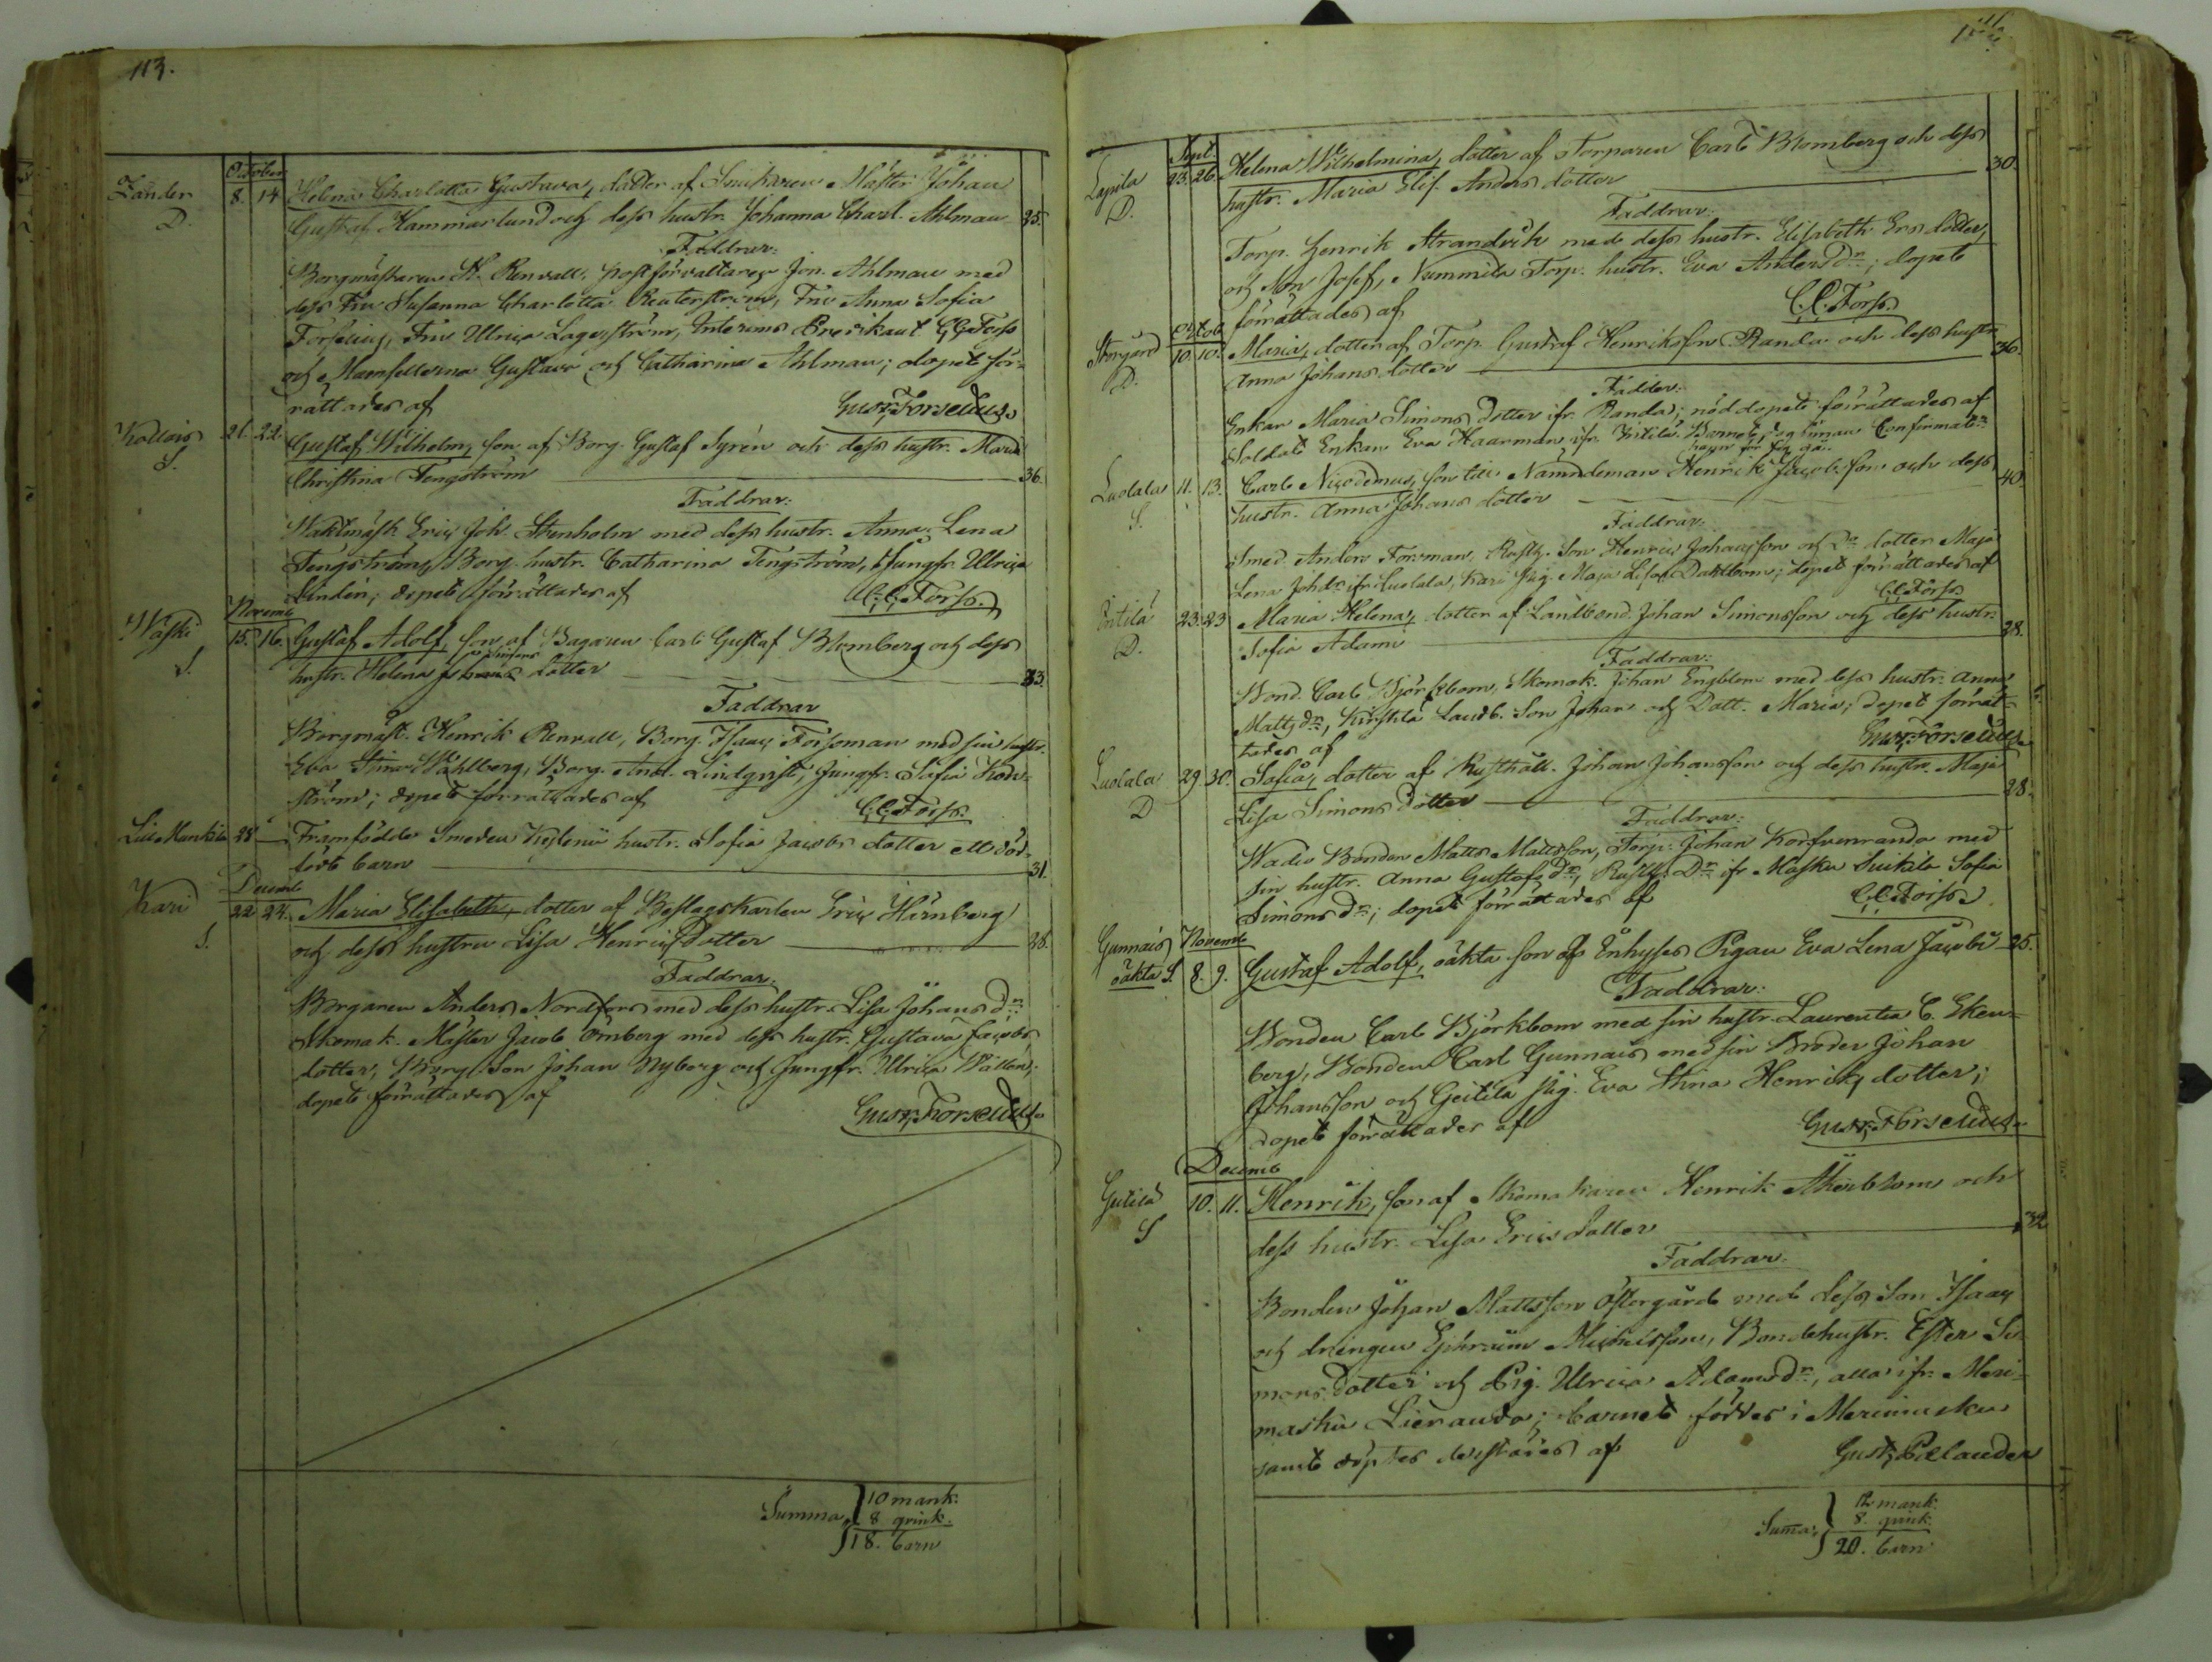 113.
October
Zander 8. 14 Helena Charlotta Gustava, dotter af Snickaren Mäster Johan
D. Gustaf Hammarlund och dess hustr. Johanna Charl. Ahlman 25.
Faddrar:
Borgmästaren H. Renvall, postförvaltaren Joh. Ahlman med
dess Fru Susanna Charlotta Reuterström, Fru Anna Sofia
Forselius, Fru Ulrica Lagerström, Interims Predikant C.C. Forss
och Mamsellerna Gustava och Catharina Ahlman; dopet för-
rättades af Gust. Forselius
Kollois 21. 22. Gustaf Wilhelm, son af Borg. Gustaf Syrén och dess hustr. Maria
S. Christina Tengström 36.
Faddrar:
Waktmäst. Eric Joh. Stenholm med dess hustr. Anna Lena
Tengström, Borg. hustr. Catharina Tengström, Jungfr. Ulrica
Lindén; dopet förrättades af C.C. Forss.
Novemb
Waski 15. 16. Gustaf Adolf, son af Bagaren Carl Gustaf Blomberg och dess
S. hustr. Helena dotter 33.
Faddrar
Borgmäst. Henrik Renvall, Borg. Isaac Forssman med sin hustr.
Eva Stina Wahlberg, Borg. And. Lindqvist, Jungfr. Sofia
ström; dopet förrättades af C.C. Forss.
Lill Munkila 28 — Framfödde Smeden hustr. Sofia Jacobs dotter ett död-
födt barn 31.
Decemb
Kari 22. 24. Maria Elisabeth, dotter af Beslagskarlen Eric Hörnberg
S. och dess hustru Lisa Henricsdotter 38.
Faddrar:
Borgaren Anders Nordfors med dess hustr. Lisa Johans dr.
Skomak. Mäster Jacob Örnberg med dess hustr. Gustava Jacobs
dotter, Borg. Son Johan Nyberg och Jungfr. Ulrica Wallén;
dopet förrättades af Gust. Forselius
Summa 10 mank.
8 qvink.
18. barn
Sept.
Lapila 23. 26. Helena Wilhelmina, dotter af Torparen Carl Blomberg och dess
D. hustr. Maria Elis. Anders dotter 30.
Faddrar:
Torp. Henrik Strandvik med dess hustr. Elisabeth Ersdotter,
och Son Josef, Nummila Torp. hustr. Eva Anders dr; dopet
förrättades af C.C. Forss.
Octob
Storgård 10. 10. Maria, dotter af Torp. Gustaf Henriksson Randa och dess hustr.
D. Anna Johans dotter 36.
Fadder:
Enkan Maria Simons dotter ifr. Randa; nöddopet förrättades af
Soldat Enkan Eva Haarman ifr.
Luolala 11. 13. Carl Nicodemus, son till Nämndeman Henrik Jacobsson och dess
S. hustr. Anna Johans dotter 40.
Faddrar:
Smed. Anders Forsman, Rusth. Son Henric Johansson och Do dotter Maja
Lena Johdr. ifr. Luolala, Kari Pig. Maja Lisa Dahlbom; dopet förrättades af
C.C. Forss
23. 23 Maria Helena, dotter af Landbond. Johan Simonsson och dess hustr.
D. Sofia Adami 28.
Faddrar:
Bond. Carl Björkbom, Skomak. Johan Engblom med dess hustr. Anna
Matts dr, Landb. Son Johan och Dott. Maria; dopet förrät-
tades af Gust. Forselius
Luolala 29. 30. Sofia, dotter af Rusthåll. Johan Johansson och dess hustr. Maja
D Lisa Simonsdotter 28.
Faddrar:
Bonden Matts Mattsson, Torp. Johan Korfvenranda med
sin hustr. Anna Gustafs dr, Rusth. Dr. ifr. Masku Sofia
Simons dr; dopet förrättades af C.C. Forss
Gunnais Novemb
oäkta S. 8. 9. Gustaf Adolf, oäkta son af Enhyses Pigan Eva Lena Jacobs 25.
Faddrar:
Bonden Carl Björkbom med sin hustr. Laurentia C. Eken-
berg, Bonden Carl Gunnais med sin Broder Johan
Johansson och Geitila Pig. Eva Stina Henriks dotter;
dopet förrättades af Gust. Forselius
Decemb
Geitila 10. 11. Henrik, son af Skomakaren Henrik Åkerblom och
S dess hustr. Lisa Ericsdotter 32
Faddrar.
Bonden Johan Mattsson Östergård med dess Son Isaac
och drängen Ephraim Michelsson, Bondehustr. Ester Si-
mons dotter och Pig. Ulrica Adams dr, alla ifr. Meri-
masku Lieranda; barnet föddes i Merimasku
samt döptes derstädes af Gust. Palander
Suma: 12 mank.
8. qvink.
20. barn